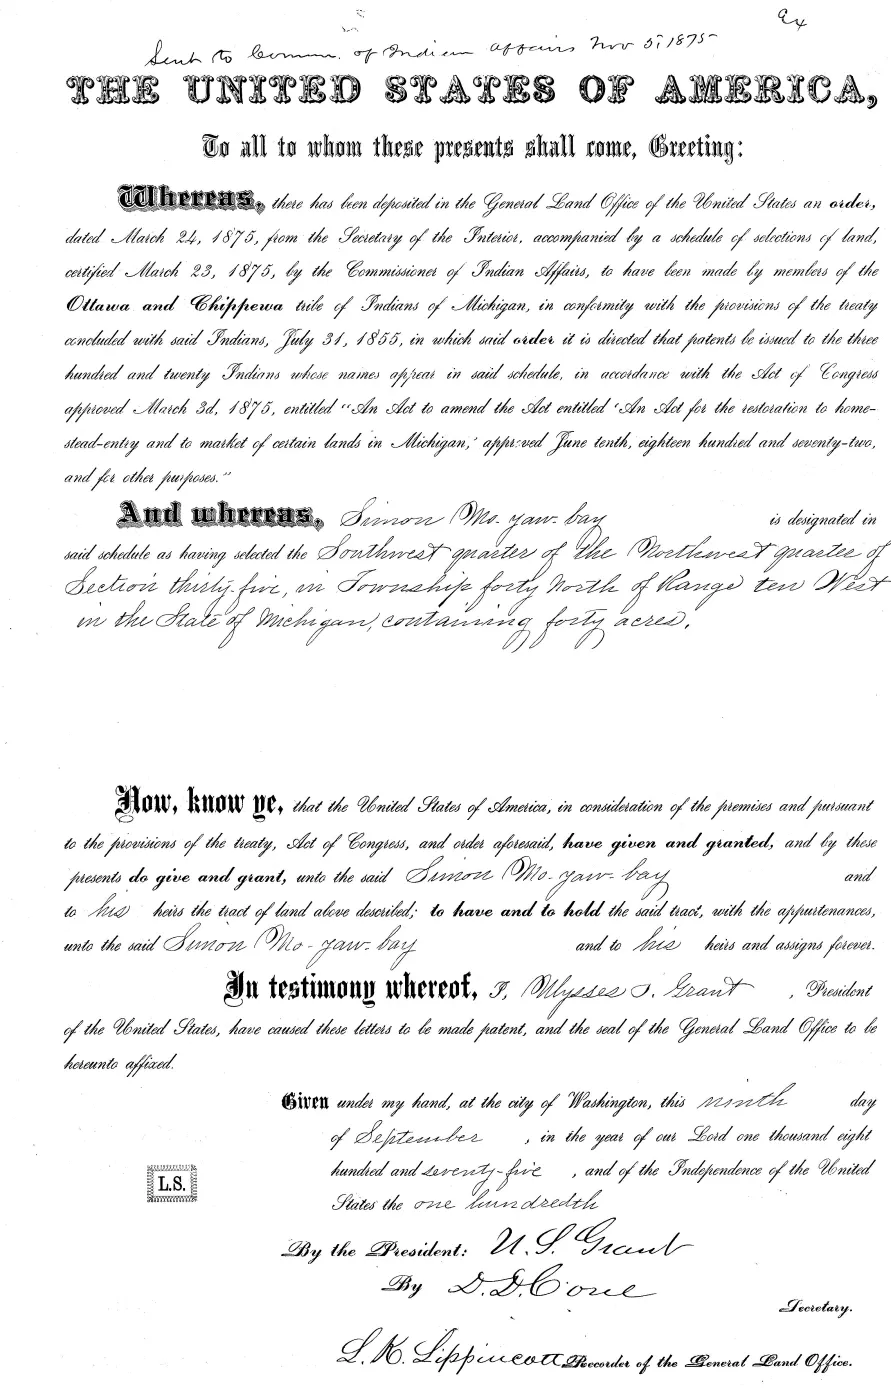 Ex
Sent to Commr. of Indian Affairs Nov 5, 1875
THE UNITED STATES OF AMERICA,
To all to whom these presents shall come, Greeting:
Whereas, there has been deposited in the General Land Office of the United States an order,
dated March 24, 1875, from the Secretary of the Interior, accompanied by a schedule of selections of land,
certified March 23, 1875, by the Commissioner of Indian Affairs, to have been made by members of the
Ottawa and Chippewa tribe of Indians of Michigan, in conformity with the provisions of the treaty
concluded with said Indians, July 31, 1855, in which said order it is directed that patents be issued to the three
hundred and twenty Indians whose names appear in said schedule, in accordance with the Act of Congress
approved March 3d, 1875, entitled "An Act to amend the Act entitled 'An Act for the restoration to home-
stead-entry and to market of certain lands in Michigan,' approved June tenth, eighteen hundred and seventy-two,
and for other purposes."
And whereas, Simon Mo-yaw-bay is designated in
said schedule as having selected the Southwest quarter of the Northwest quarter of
Section thirty-five, in Township forty North of Range ten West
in the State of Michigan, containing forty acres.
Now, know ye, that the United States of America, in consideration of the premises and pursuant
to the provisions of the treaty, Act of Congress, and order aforesaid, have given and granted, and by these
presents do give and grant, unto the said Simon Mo-yaw-bay and
to his heirs the tract of land above described; to have and to hold the said tract, with the appurtenances,
unto the said Simon Mo-yaw-bay and to his heirs and assigns forever.
In testimony whereof, I, Ulysses S. Grant, President
of the United States, have caused these letters to be made patent, and the seal of the General Land Office to be
hereunto affixed.
Given under my hand, at the city of Washington, this ninth day
of September, in the year of our Lord one thousand eight
hundred and seventy-five, and of the Independence of the United
States the one hundredth
L.S.
By the President: U. S. Grant
By D. D. Cone
Secretary.
L. K. Lippincott Recorder of the General Land Office.